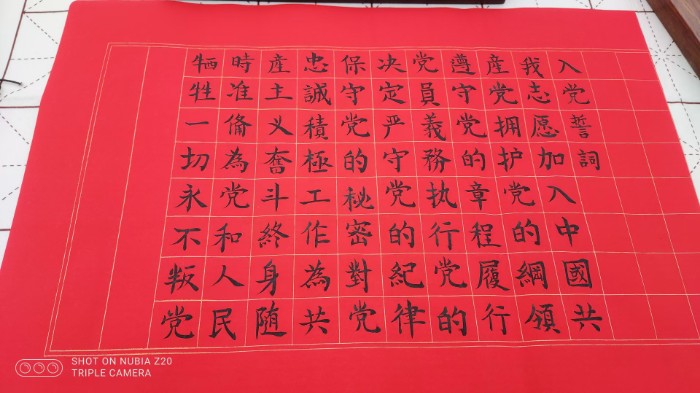 入党誓詞
我志愿加入中國共
產党拥护党的綱領
遵守党的章程履行
党員義務执行党的
决定严守党的紀律
保守党的秘密對党
忠誠積極工作為共
產主义奮斗終身随
時准俻為党和人民
牺牲一切永不叛党
SHOT ON NUBIA Z20
TRIPLE CAMERA